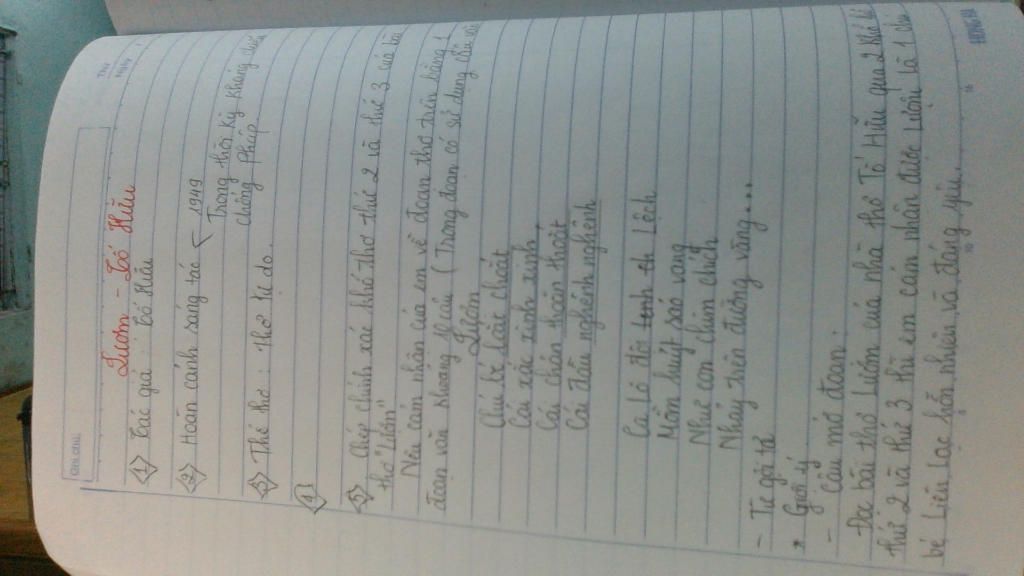 Thứ
Ngày
Ghi chú
Lượm - Tố Hữu
1 Tác giả : Tố Hữu
2 Hoàn cảnh sáng tác 1949
Trong thời kỳ kháng chiến
chống Pháp
3 Thể thơ : Thơ tự do.
4
5 Chép chính xác khổ thơ thứ 2 và thứ 3 của bài
thơ "Lượm"
Nêu cảm nhận của em về đoạn thơ trên bằng 1
đoạn văn khoảng câu (Trong đoạn có sử dụng câu
Lượm
Chú bé loắt choắt
Cái xắc xinh xinh
Cái chân thoăn thoắt
Cái đầu nghênh nghênh
Ca lô đội lệch
Mồm huýt sáo vang
Như con chim chích
Nhảy trên đường vàng...
- Từ gợi tả
* Gợi ý
- câu mở đoạn :
Đọc bài thơ Lượm của nhà thơ Tố Hữu qua 2 khổ
thứ 2 và thứ 3 thì em cảm nhận được Lượm là 1 chú
bé liên lạc hồn nhiên và đáng yêu.
HỒNG HÀ